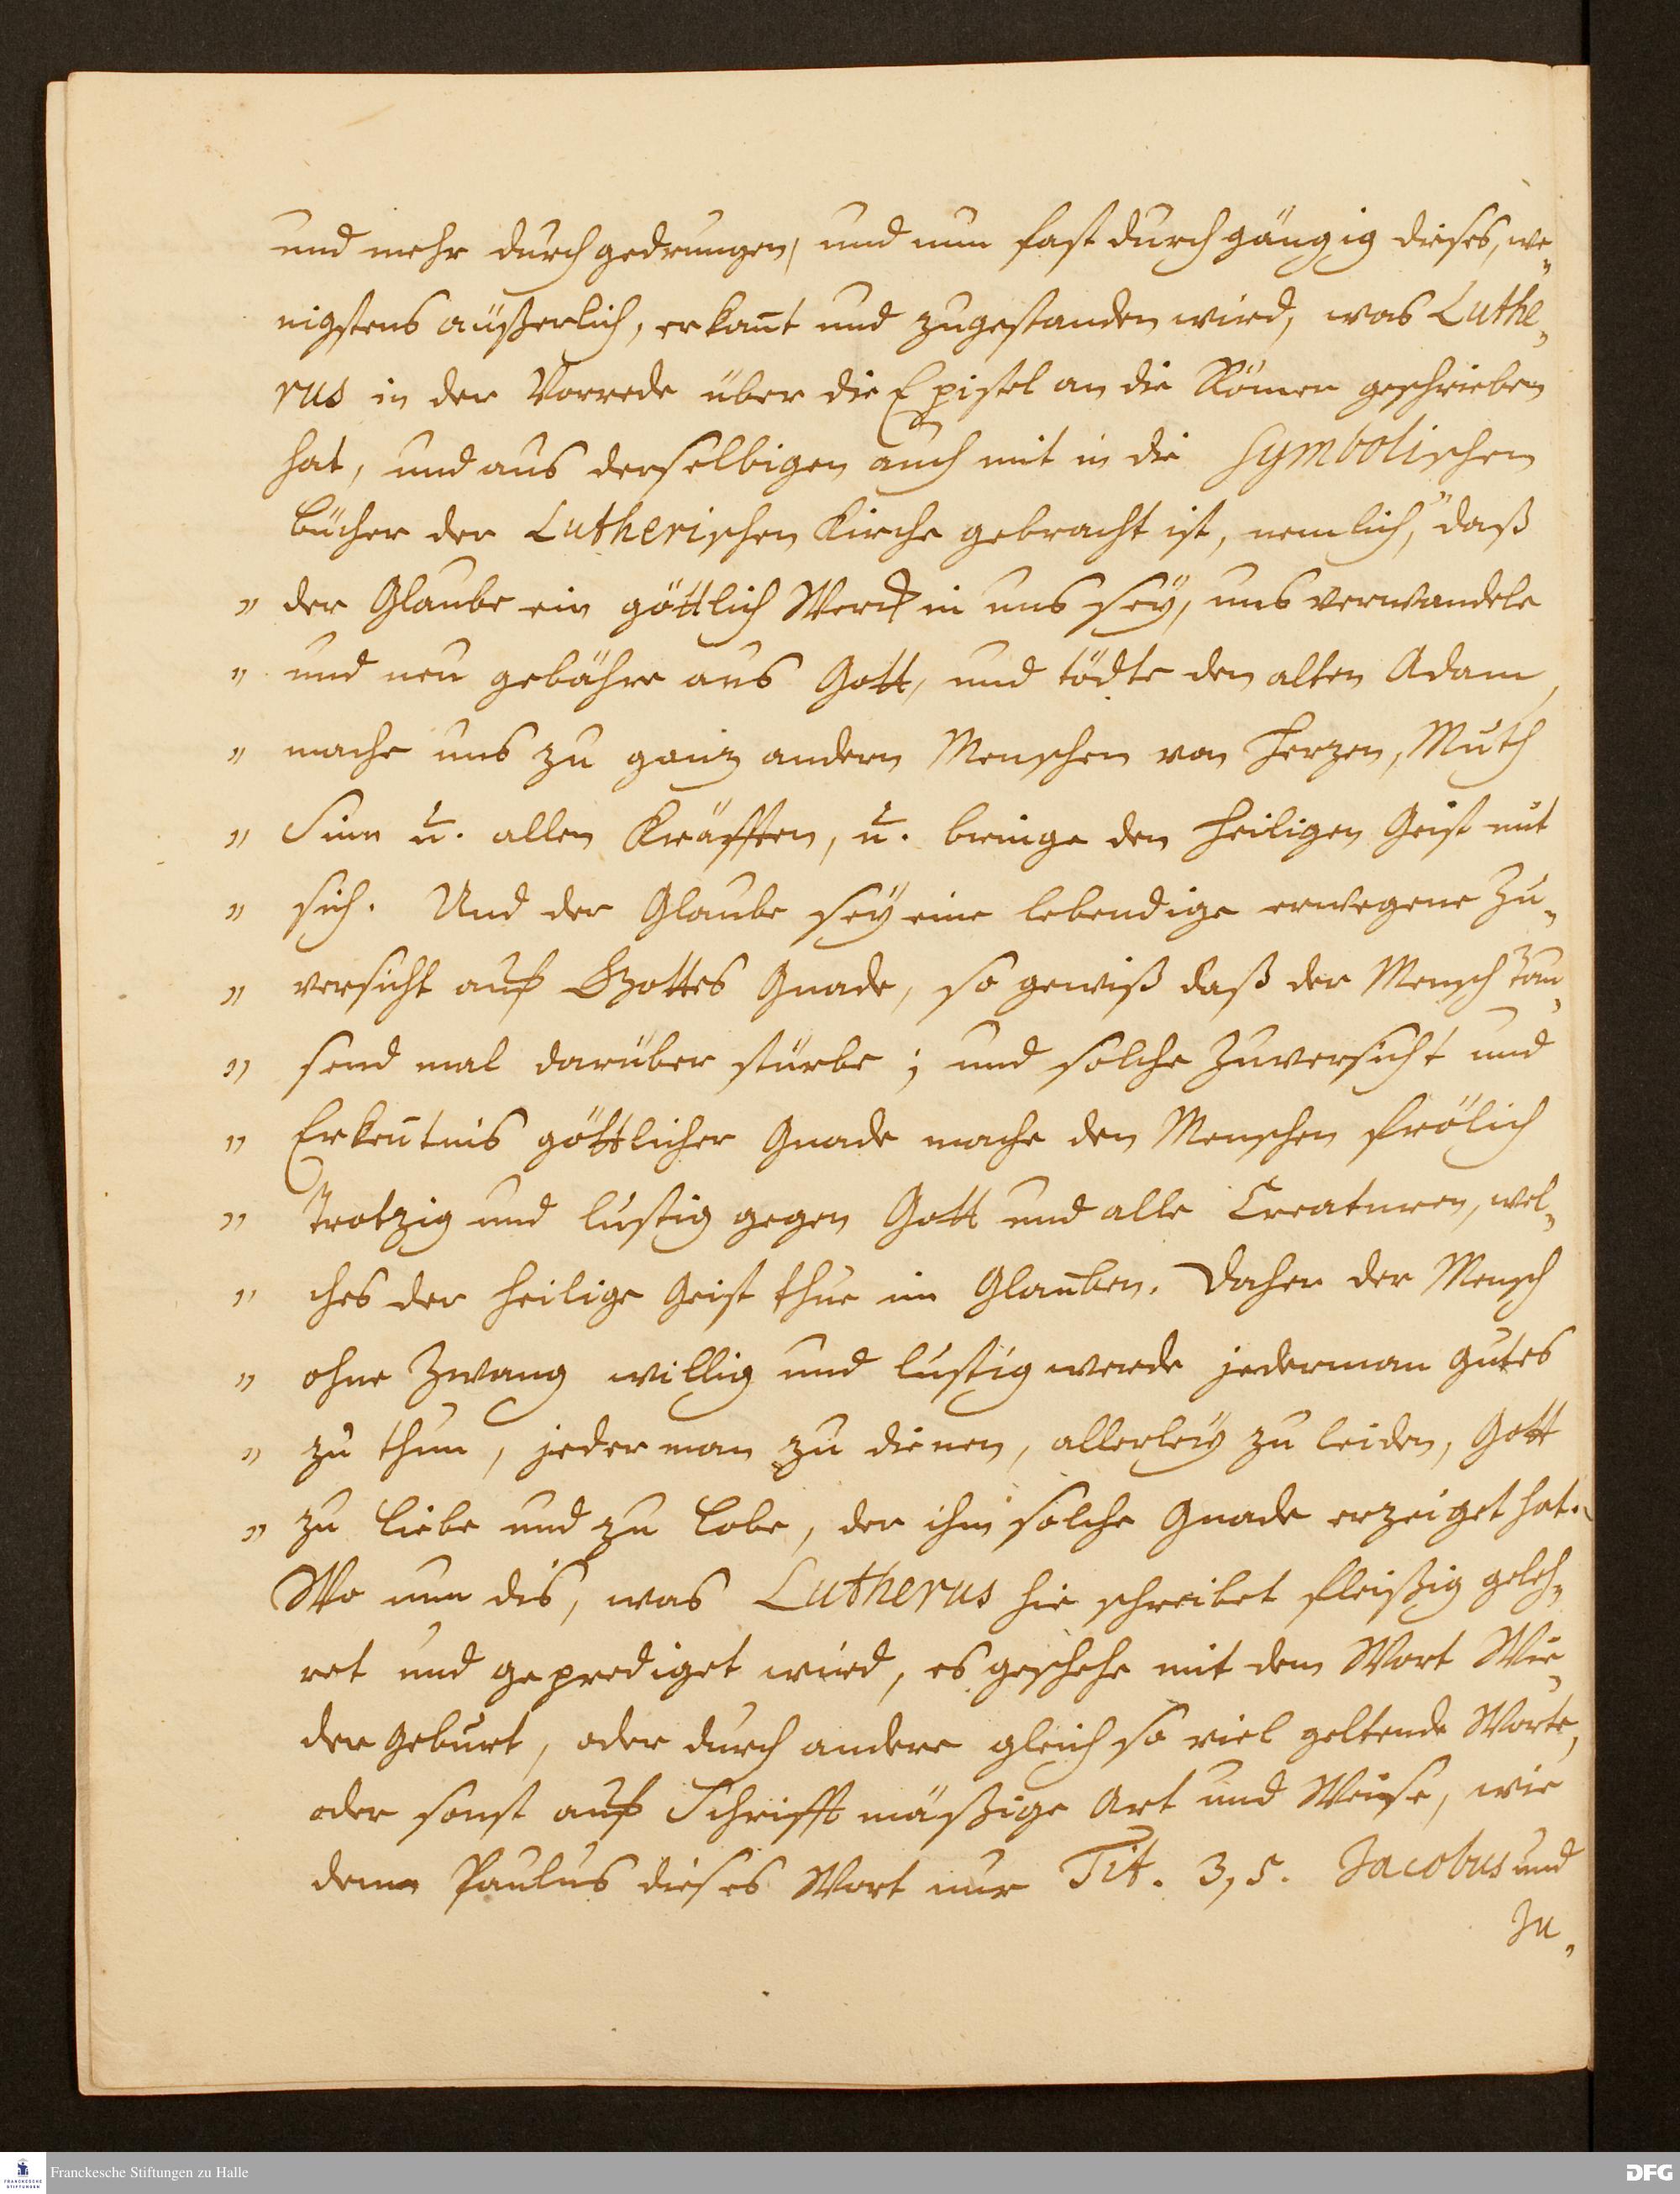 und mehr durchgedrungen, und nun fast durchgängig dieses, we„
nigstens äüßerlich, erkan̄t und zugestanden wird, was Luthe„
rus in der Vorrede über die Epistel an die Römer geschrieben
hat, und aus derselbigen auch mit in die Symbolischen
Bücher der Lutherischen Kirche gebracht ist, nemlich, „daß
„ der Glaube ein göttlich Werck in uns seÿ, uns verwandele
„ und neu gebähre aus Gott, und tödte den alten Adam,
„ mache uns zu ganz andern Menschen von Herzen, Muth
„ Sinn u. allen Kräfften, u. bringe den Heiligen Geist mit
„ sich. Und der Glaube seÿ eine lebendige erwegene Zu„
„ versicht auf Gottes Gnade, so gewiß daß der Mensch tau„
„ send mal darüber stürbe; und solche Zuversicht und
„ Erken̄tnis göttlicher Gnade mache den Menschen frölich
„ Trotzig und lustig gegen Gott und alle Creaturen, wel„
„ ches der Heilige Geist thue im Glauben. Daher der Mensch
„ ohne Zwang willig und lustig werde jederman gutes
„ zu thun, jederman zu dienen, allerleÿ zu leiden, Gott
„ zu Liebe und zu Lobe, der ihm solche Gnade erzeiget hat.
Wo nun dis, was Lutherus hie schreibet fleißig geleh„
ret und geprediget wird, es geschehe mit dem Wort Wie„
der Geburt, oder durch andere gleich so viel geltende Worte,
oder sonst auf Schrifft mäßige Art und Weise, wie
denn Paulus dieses Wort nur Tit. 3, 5. Jacobus und
Ju„
Franckesche Stiftungen zu Halle
FRANCKESCHE
STIFTUNGEN
DFG